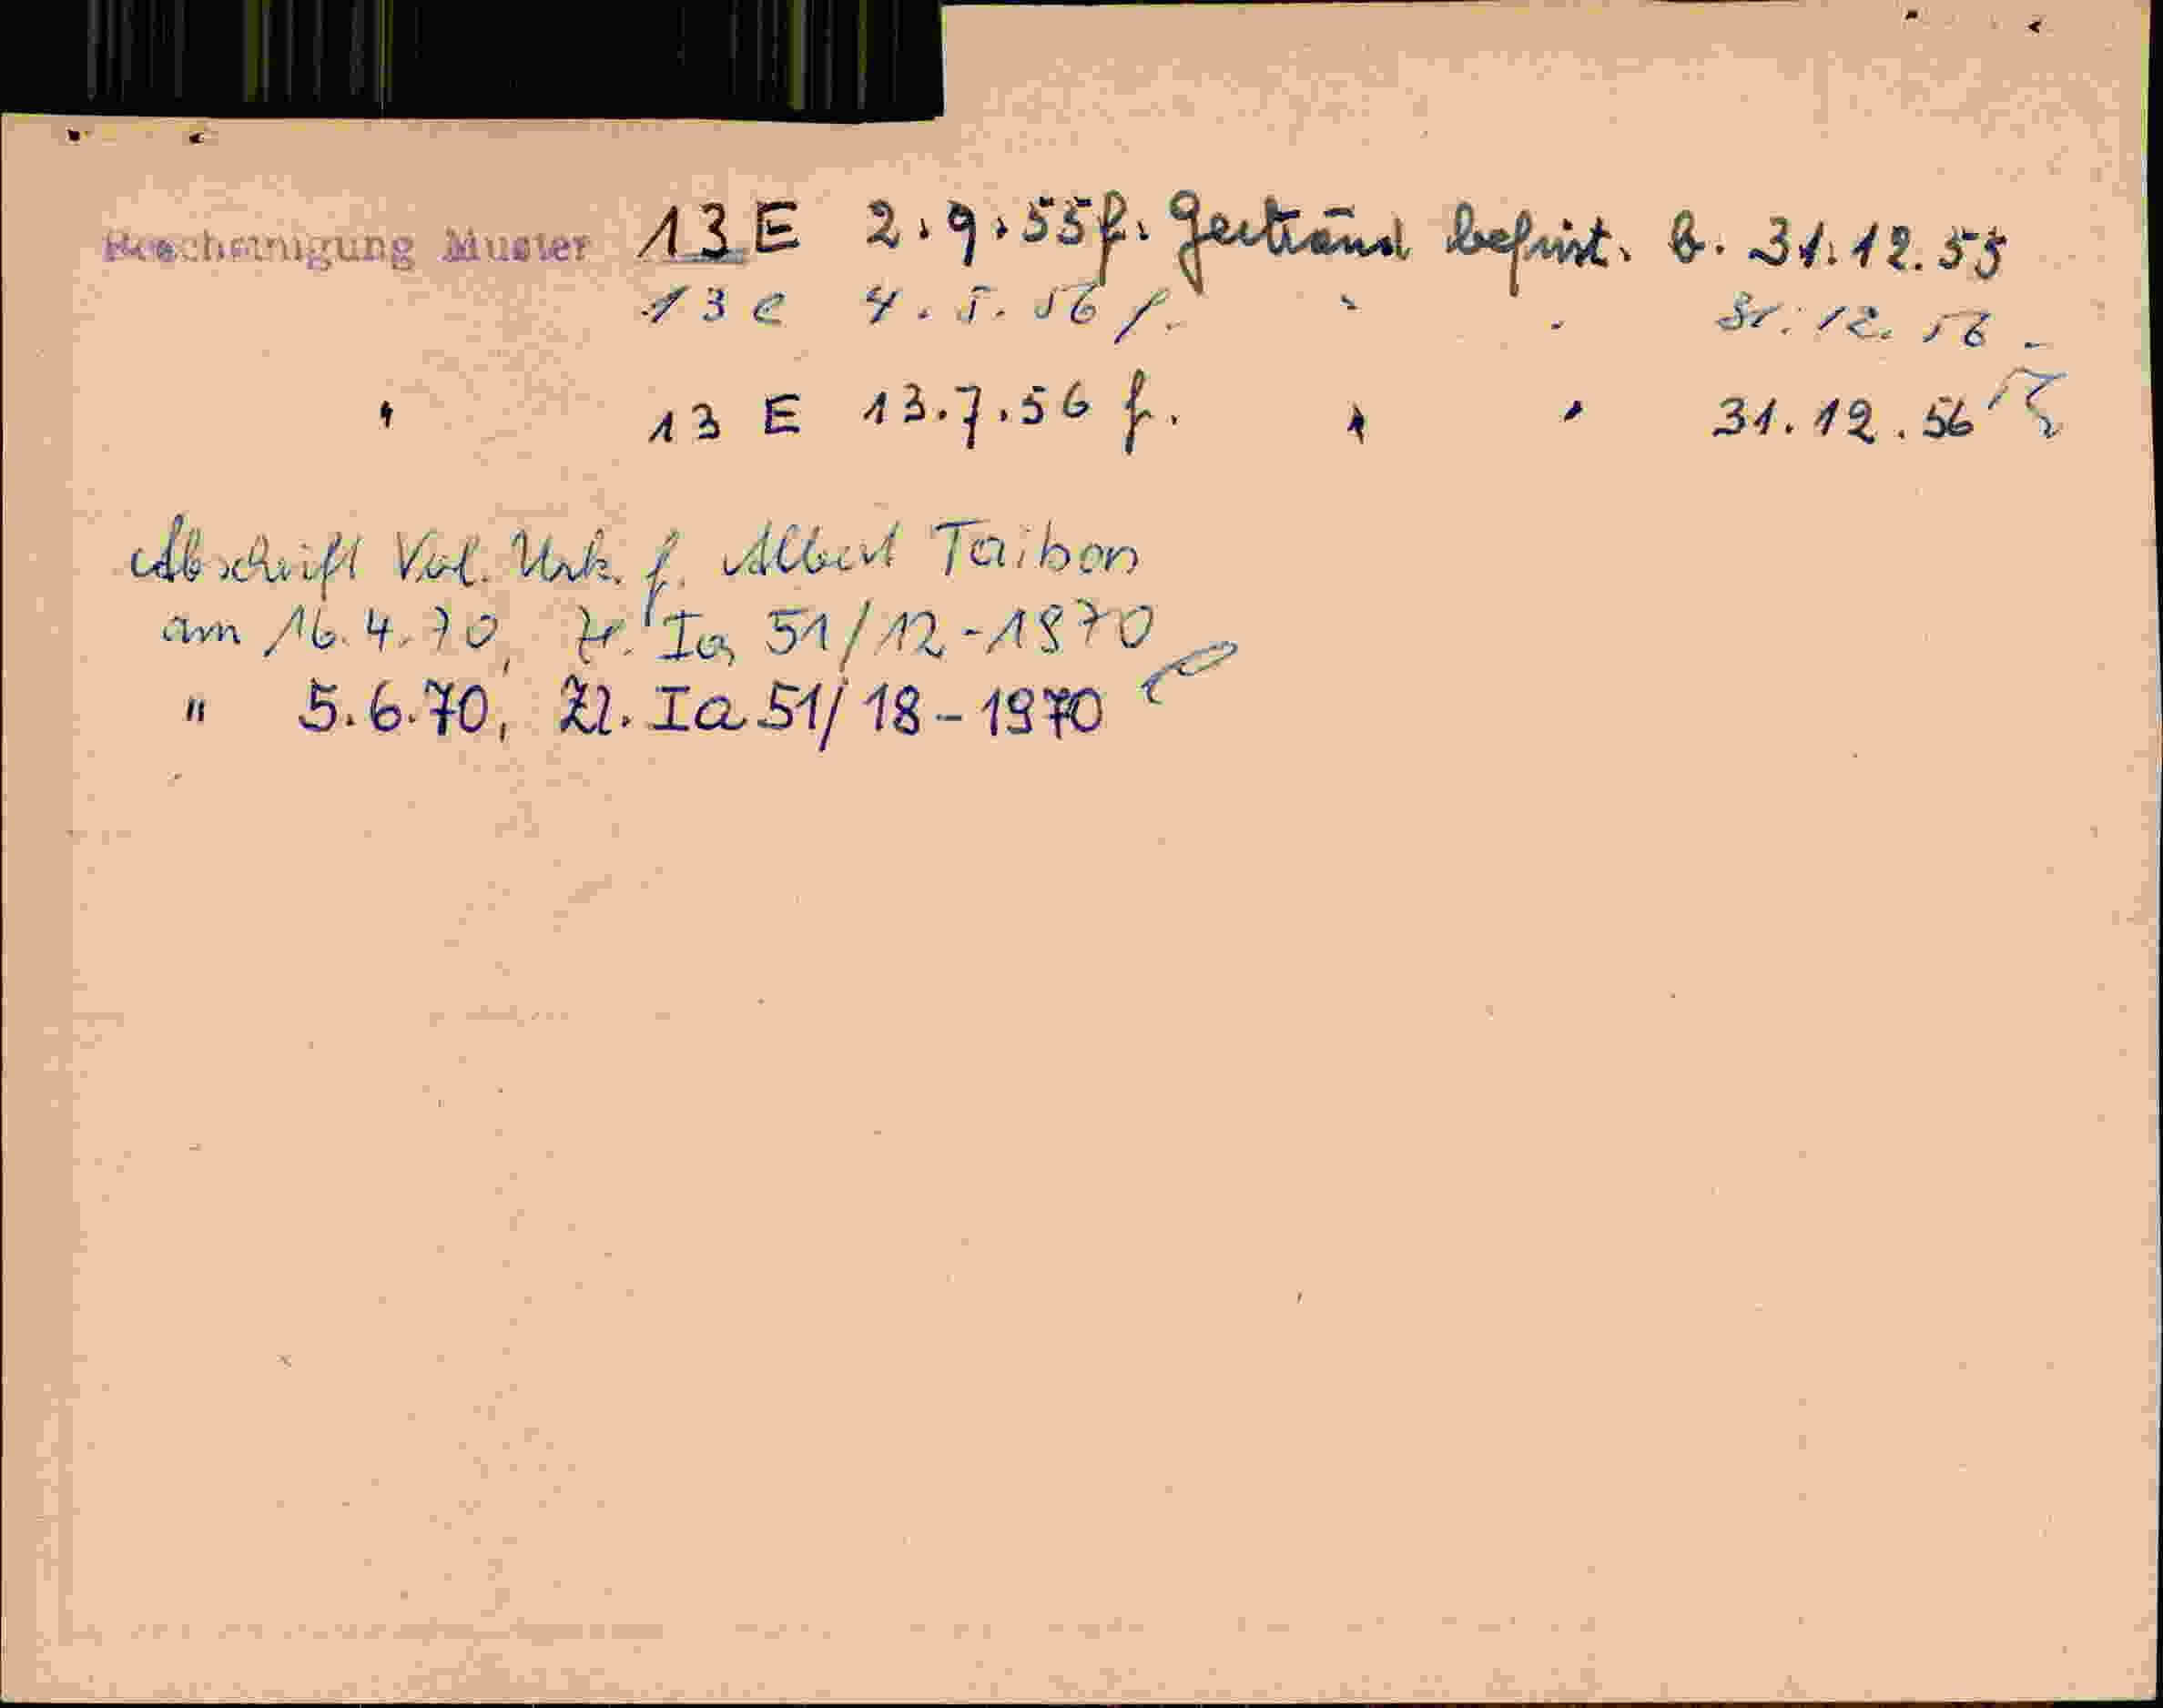 Bescheinigung Muster 13 E 2.9.55 f. Gertraud befrist. b. 31.12.55
13 e 4.5.56 f. " " 31.12.56
" 13 E 13.7.56 f. " " 31.12.56
Abschrift Verl. Urk. f. Albert Taibon
am 16.4.70, Zl. Ia 51/12-1970
" 5.6.70, Zl. Ia 51/18-1970